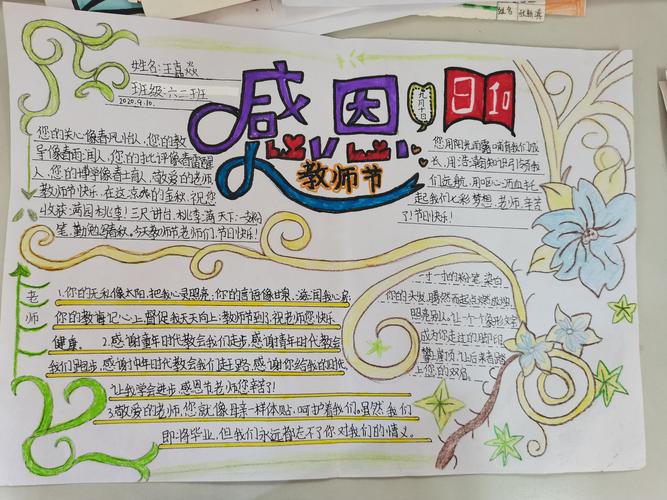 姓名:王嘉焱
班级:六二班
2020.9.10.
感恩
九月十日
9 10
教师节
您的关心像春风怡人,您的教
导像春雨润人,您的批评像春雷醒
人,您的博学像春土育人,敬爱的老师
教师节快乐,在这凉爽的金秋,祝您
收获:满园桃李!三尺讲台,桃李满天下:一支粉
笔,勤勉绘春秋。今天教师节老师们,节日快乐!
您用阳光雨露哺育我们成
长,用浩瀚知识引领我
们远航,用呕心沥血托
起我们七彩梦想,老师,辛苦
了!节日快乐!
老师
1.你的无私像太阳,把我心灵照亮;你的言语像甘泉,滋润我心房;
你的教诲记心上,督促我天天向上;教师节到,祝老师您快乐
健康。 2.感谢童年时代教会我们走步,感谢青年时代教会
我们跑步,感谢中年时代教会我们赶路,感谢你给我的时代
让我学会进步,感恩节老师您辛苦了!
3.敬爱的老师,您就像母亲一样体贴,呵护着我们。虽然我们
即将毕业,但我们永远都忘不了你对我们的情义。
一寸一寸的粉笔,染白
你的头发,
照亮别人。让一个个象形文字
成为你走过的脚印,
攀崖顶,让后来者踏
上您的双肩。
姓名